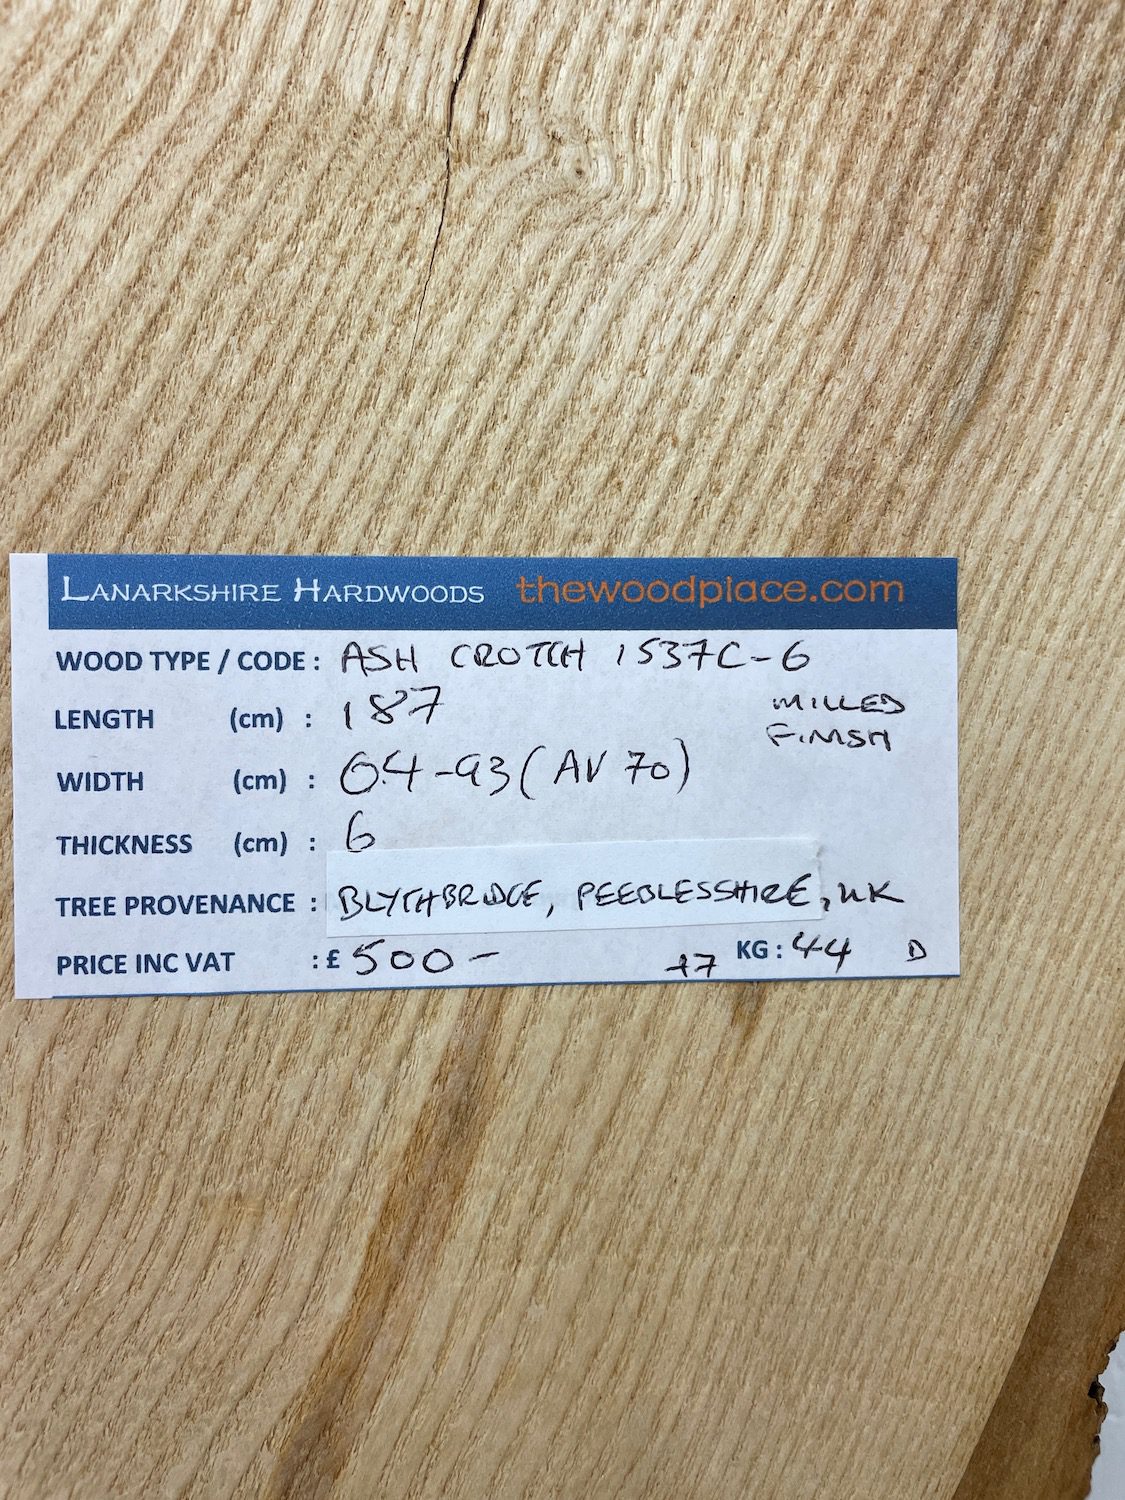 LANARKSHIRE HARDWOODS thewoodplace.com
WOOD TYPE / CODE : ASH CROTCH 1537C-6
LENGTH (cm) : 187
MILLED
FINISH
WIDTH (cm) : 64-93 (AV 70)
THICKNESS (cm) : 6
TREE PROVENANCE : BLYTHBRIDGE, PEEBLESSHIRE, UK
PRICE INC VAT : £ 500- +7 KG : 44 D